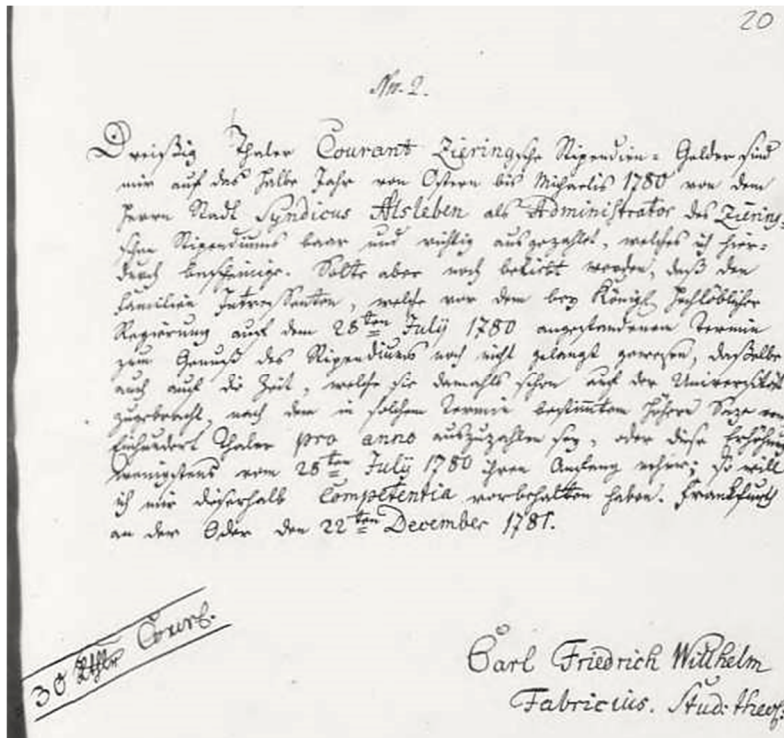 20
No. 2.
Dreißig Thaler Courant Ziering­sche Stipendien-Gelder sind
mir auf das halbe Jahr von Ostern bis Michaelis 1780 von dem
Herrn Stadt Syndicus Alsleben als Administrator des Ziering-
schen Stipendiums baar und richtig ausgezahlet, welches ich hier-
durch bescheinige. Solte aber noch beliebt werden, daß den
Familien Interessenten, welche vor dem bey Königl. Hochlöblicher
Regierung auf dem 28ten July 1780 angestandenen Termin
zum Genuß des Stipendiums noch nicht gelangt gewesen, daßelbe
auch auf die Zeit, welche sie damahls schon auf der Universitaet
zugebracht, nach dem in solchem Termin bestimmten höhern Saze von
Einhundert Thaler pro anno auszuzahlen sey, oder diese Erhöhung
wenigstens vom 28ten July 1780 ihren Anfang nehme; so will
ich mir dieserhalb Competentia vorbehalten haben. Franckfurth
an der Oder den 22ten December 1781.
30 Thlr Cour.
Carl Friedrich Willhelm
Fabricius. Stud: theol: